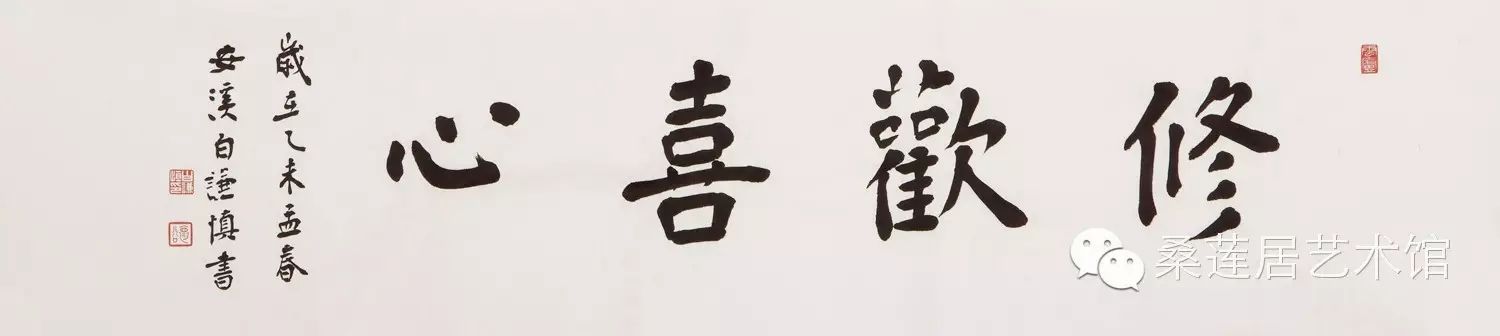 修歡喜心
歲在乙未孟春
安溪白謙慎書
桑莲居艺术馆